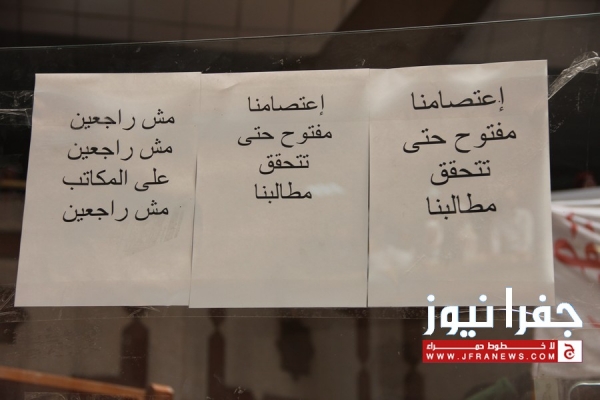 إعتصامنا
مفتوح حتى
تتحقق
مطالبنا
إعتصامنا
مفتوح حتى
تتحقق
مطالبنا
مش راجعين
مش راجعين
على المكاتب
مش راجعين
جفرا نيوز
لا خطوط حمراء
WWW.JFRANEWS.COM